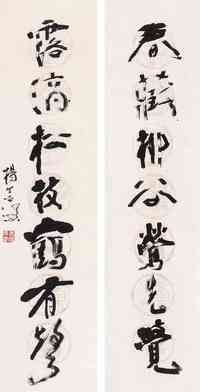 春藏柳谷莺先觉
露滴松枝鹤有声